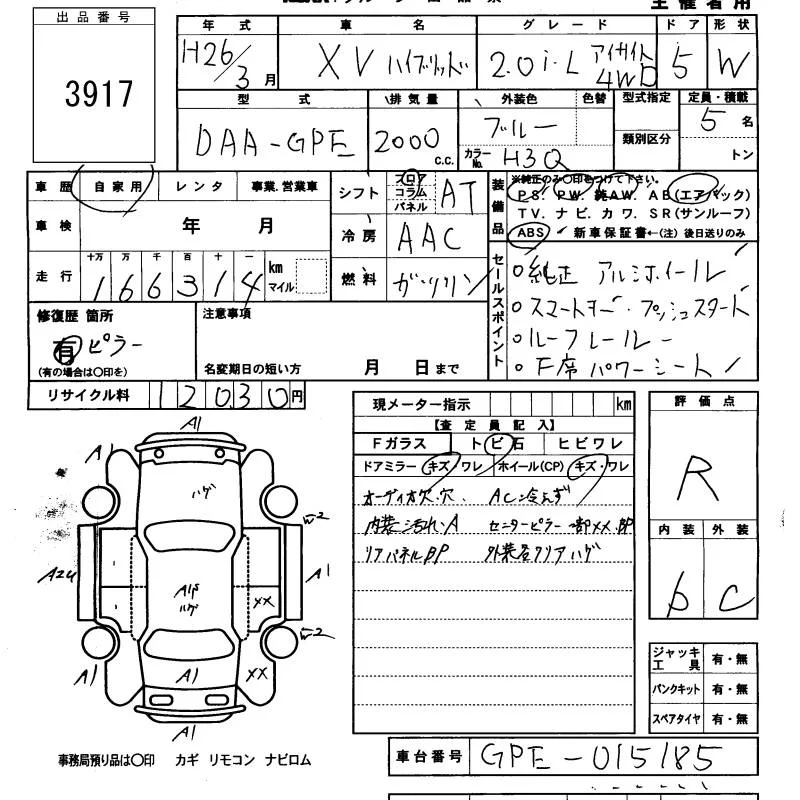 主催者用
出品番号
3917
年式 車名 グレード ドア 形状
H26/3月 XV ハイブリッド 2.0i-L アイサイト 4WD 5 W
型式 排気量 外装色 色替 型式指定 定員・積載
DAA-GPE 2000 c.c. ブルー 類別区分 5名
カラーNo. H3Q トン
車歴 自家用 レンタ 事業.営業車 シフト フロア コラム パネル AT
装備品 ※純正のみ〇印をつけて下さい。
PS. PW. 純AW. AB(エアバック)
TV. ナビ. カワ. SR(サンルーフ)
ABS 新車保証書←(注)後日送りのみ
車検 年 月 冷房 AAC
走行 十万 万 千 百 十 一 km マイル 燃料 ガソリン
166314
セールスポイント
○純正 アルミホイール
○スマートキー・プッシュスタート
○ルーフレール
○F席 パワーシート
修復歴 箇所 注意事項
有 ピラー
(有の場合は〇印を) 名変期日の短い方 月 日まで
リサイクル料 12030円
現メーター指示 km
【査定員記入】
Fガラス トビ石 ヒビワレ
ドアミラー キズ・ワレ ホイール(CP) キズ・ワレ
オーディオ欠.穴. AC冷えず
内装汚れ・A センターピラー一部XX.BP
リアパネルBP 外装各クリアハゲ
評価点
R
内装 外装
b C
ジャッキ工具 有・無
パンクキット 有・無
スペアタイヤ 有・無
A1
A1 ハゲ
W2
A2U ハゲ XX A1
W2
A1 A1 XX
A1
事務局預り品は〇印 カギ リモコン ナビロム
車台番号 GPE-015185